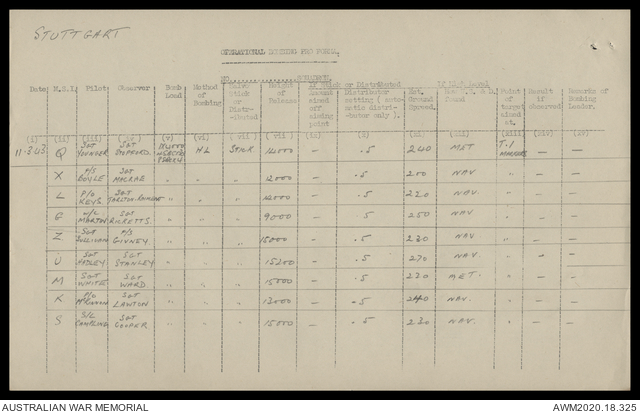 STUTTGART
OPERATIONAL BOMBING PRO FORMA.
NO............SQUADRON.
Date M.S.I. Pilot Observer Bomb Load Method of Bombing Salvo Stick or Distributed Height of Release If Stick or Distributed Distributor setting ( automatic distributor only ). Met. Ground Speed. found Point of target aimed at. Result if observed Remarks of Bombing Leader.
(i) (ii) (iii) (iv) (v) (vi) (vii) (x) (xiii) (xiv) (xv)
11.3.43. Q SGT YOUNGER SGT HL STICK 14000 — .5 240 MET T.I MARKERS — —
X F/S BOYLE SGT MACRAE " " " 12000 — .5 200 NAV " — —
L P/O KEYS. SGT " " " 12000 — .5 220 NAV. " — —
G W/L MARTIN SGT RICKETTS. " " " 9000 — .5 250 NAV " — —
Z SGT SULLIVAN F/S GINNEY " " " 15000 — .5 230 NAV " — —
U SGT HADLEY SGT STANLEY " " " 15200 — .5 270 NAV " — —
M SGT WHITE SGT WARD. " " " 15000 — .5 230 MET. " — —
K P/O M'KINNON SGT LAWTON " " " 13000 — .5 240 NAV. " — —
S S/L CAMPLING SGT COOPER " " " 15000 — .5 230 NAV. " — —
AUSTRALIAN WAR MEMORIAL
AWM2020.18.325